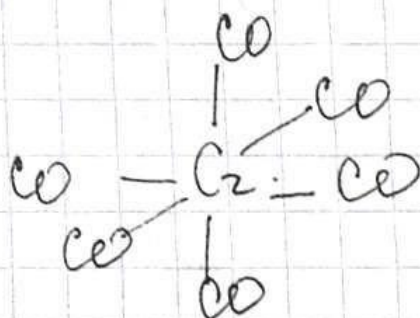 CO
CO
CO Cr CO
CO
CO